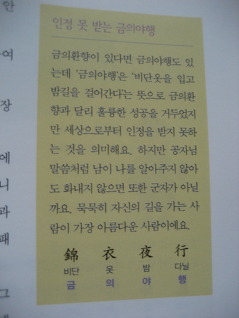 인정 못 받는 금의야행
금의환향이 있다면 금의야행도 있
는데 '금의야행'은 '비단옷을 입고
밤길을 걸어간다'는 뜻으로 금의환
향과 달리 훌륭한 성공을 거두었지
만 세상으로부터 인정을 받지 못하
는 것을 의미해요. 하지만 공자님
말씀처럼 남이 나를 알아주지 않아
도 화내지 않으면 또한 군자가 아닐
까요. 묵묵히 자신의 길을 가는 사
람이 가장 아름다운 사람이에요.
錦 衣 夜 行
비단 옷 밤 다닐
금 의 야 행
한
여
장
에
니
파
패
그